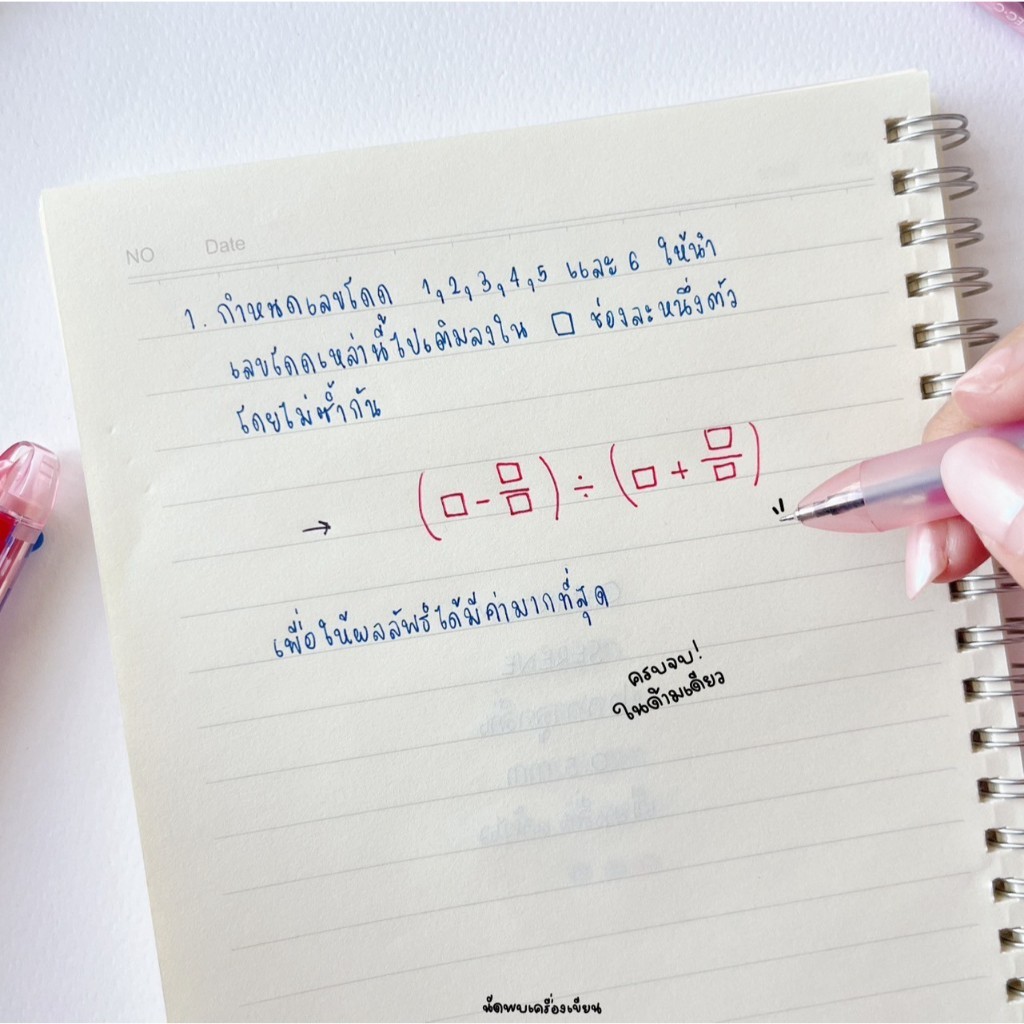 NO Date
1. กำหนดเลขโดด 1,2,3,4,5 และ 6 ให้นำ
เลขโดดเหล่านี้ไปเติมลงใน □ ช่องละหนึ่งตัว
โดยไม่ซ้ำกัน
→ (□ - □/□) ÷ (□ + □/□)
เพื่อให้ผลลัพธ์ได้มีค่ามากที่สุด
ครบจบ!
ในด้ามเดียว
นัดพบเครื่องเขียน